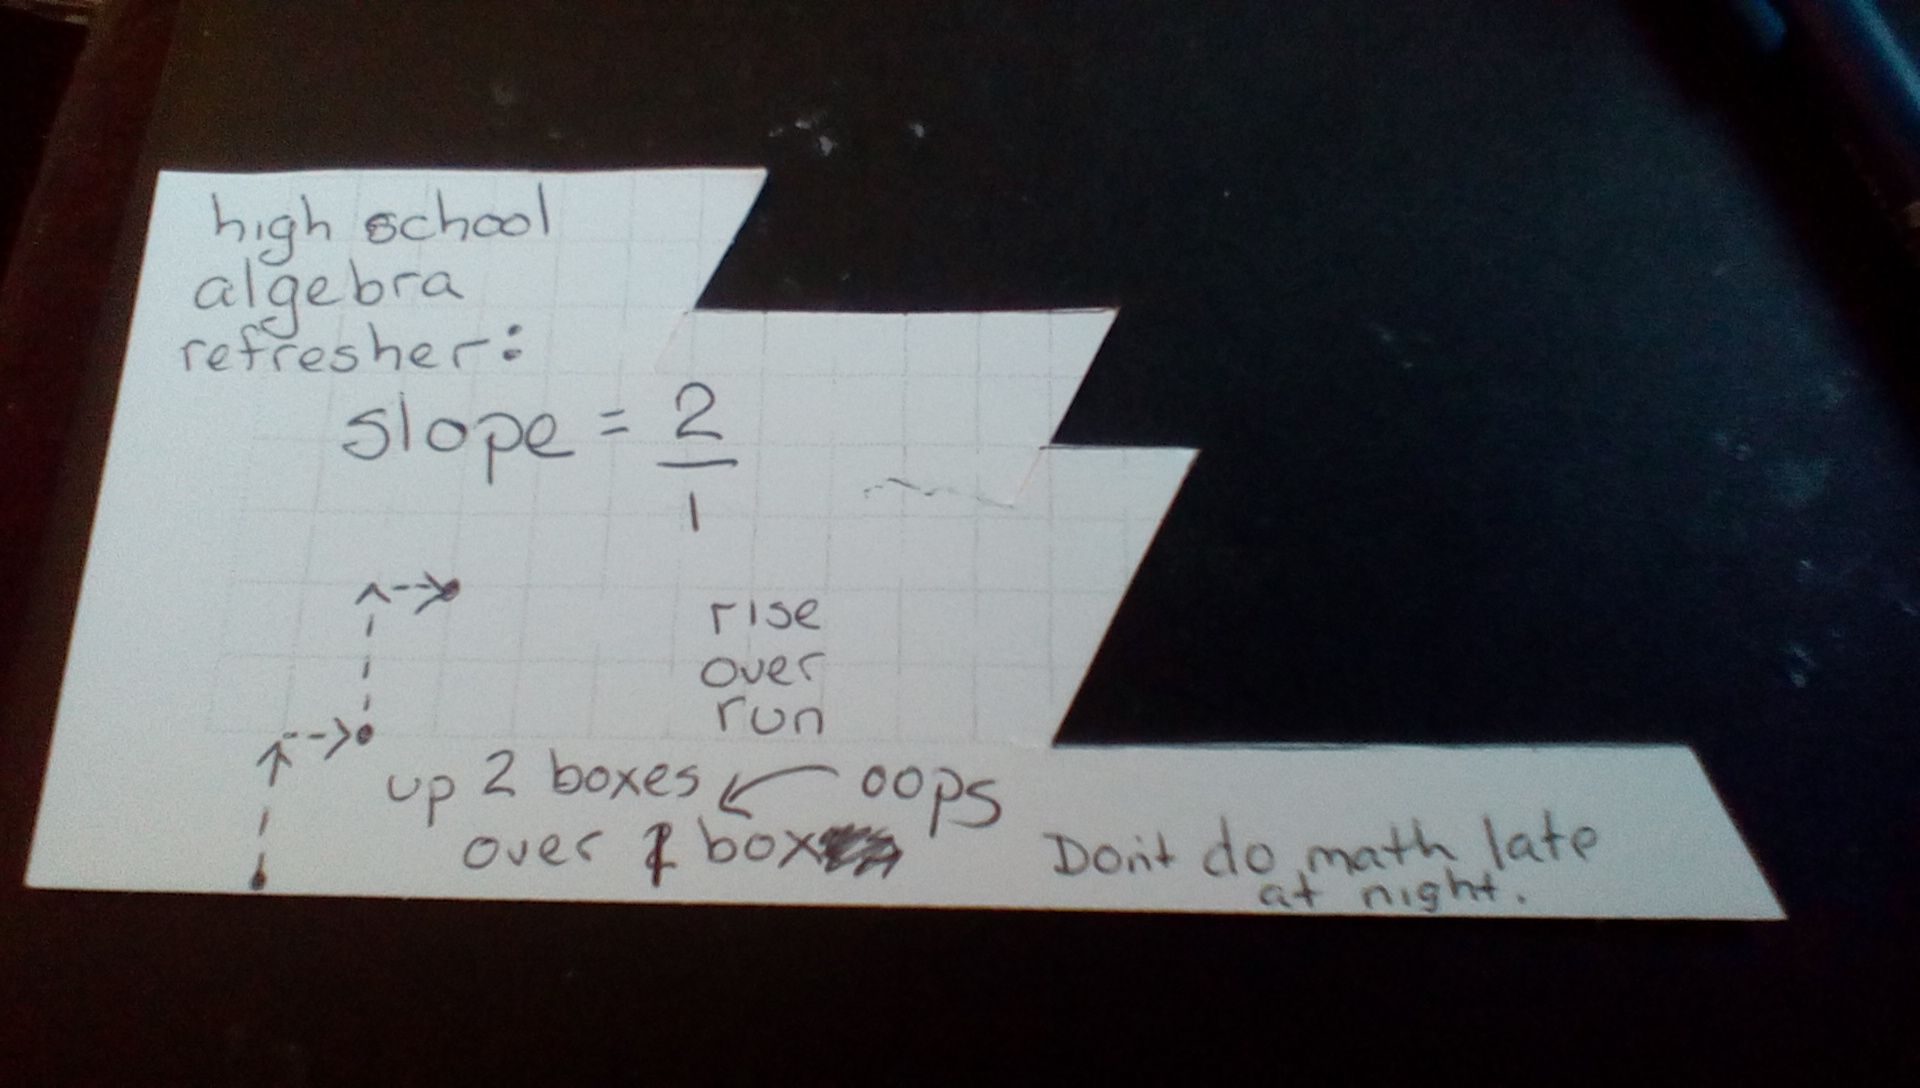 high school
algebra
refresher:
slope = 2
1
rise
over
run
up 2 boxes oops
over 1 box
Don't do math late
at night.